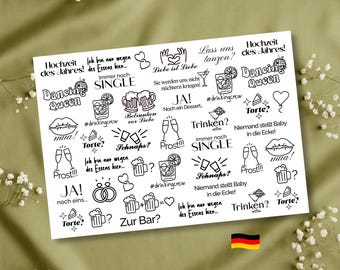 Hochzeit
des Jahres!
Ich bin nur wegen
des Essens hier...
Liebe ist Liebe
Lass uns
tanzen!
Hochzeit
des Jahres!
Dancing
Queen
immer noch
SINGLE
Sie werden uns nicht
nüchtern kriegen!
Dancing
Queen
#drinkingcrew
Betrunken
vor Liebe
JA!
Noch ein Dessert.
#drinkingcrew
mua!
Torte?
Prost!!!
Schnaps?
immer noch
SINGLE
Trinken?
Niemand stellt Baby
in die Ecke!
Torte?
Ich bin nur wegen
des Essens hier...
?
Prost!!!
Schnaps?
mua!
Prost!!!
JA!
noch eins...
?
#drinkingcrew
Niemand stellt Baby
in die Ecke!
Torte?
?
Zur Bar?
Ich bin nur wegen
des Essens hier...
Trinken?
?